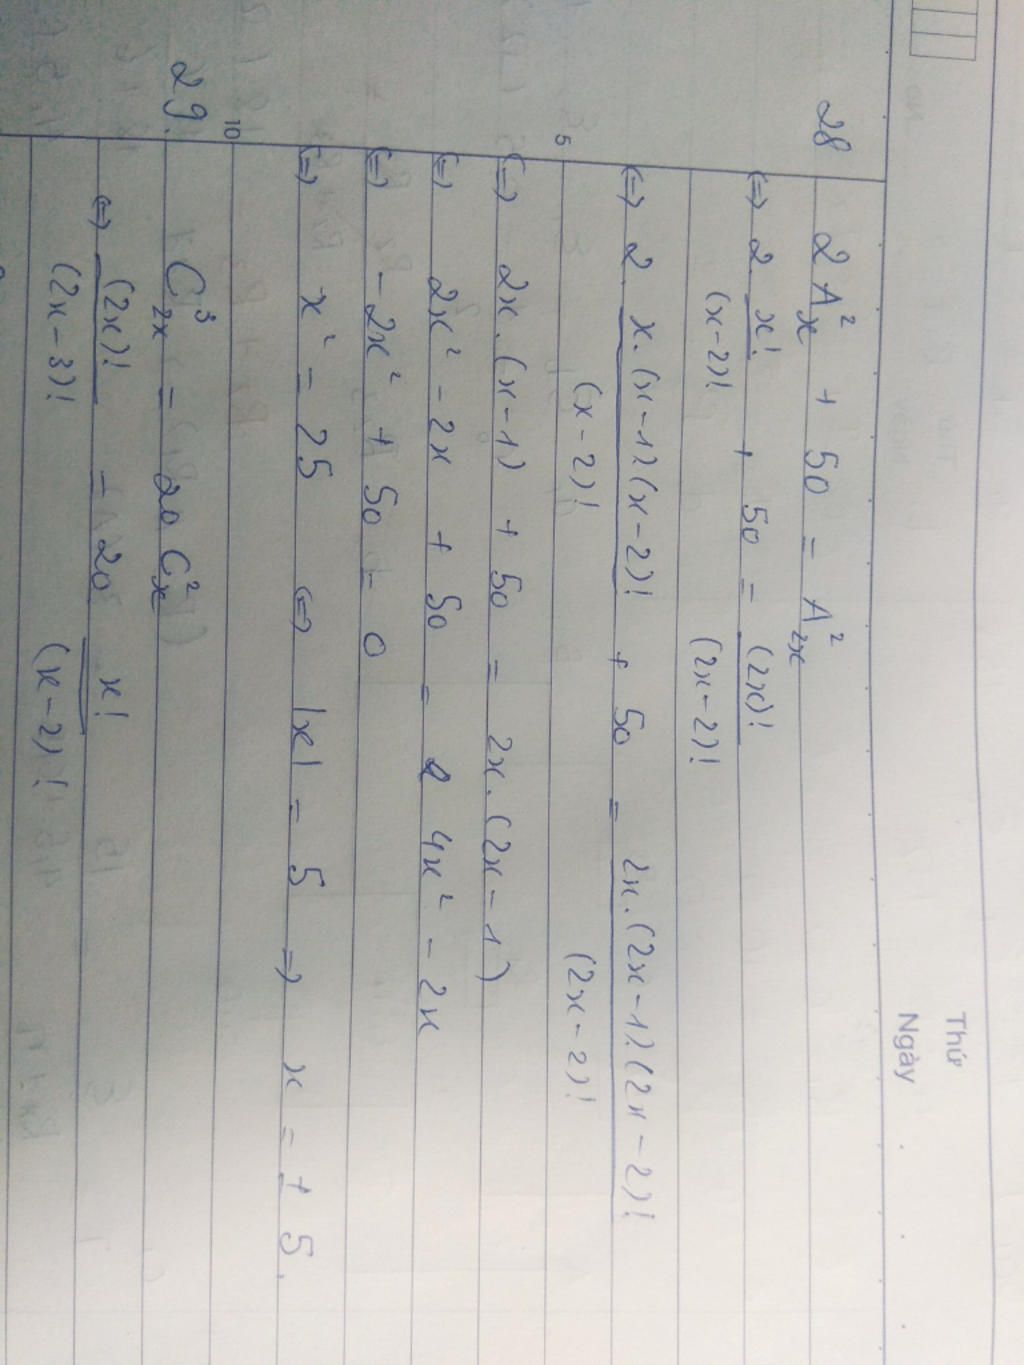 Thứ
Ngày
28 2A²ₓ + 50 = A²₂ₓ
(=) 2. x!/(x-2)! + 50 = (2x)!/(2x-2)!
(=) 2. x.(x-1)(x-2)!/(x-2)! + 50 = 2x.(2x-1).(2x-2)!/(2x-2)!
5
(=) 2x.(x-1) + 50 = 2x.(2x-1)
(=) 2x² - 2x + 50 = 4x² - 2x
(=) -2x² + 50 = 0
(=) x² = 25 (=) |x| = 5 => x = ± 5.
10
29. C³₂ₓ = 20 C²ₓ
(=) (2x)!/(2x-3)! = 20 x!/(x-2)!